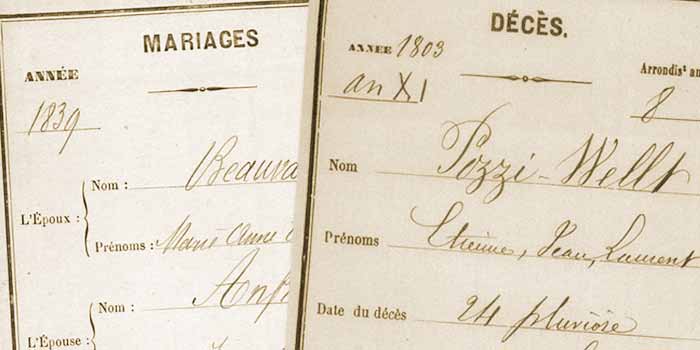 MARIAGES
ANNÉE
1839
L'Époux :
Nom : Beauva
Prénoms : Marie Anne
L'Épouse :
Nom : Anf
DÉCÈS.
ANNEE 1803
an XI
Arrondist an
8
Nom Pozzi-Wellt
Prénoms Etienne, Jean, Laurent
Date du décès 24 pluviôse